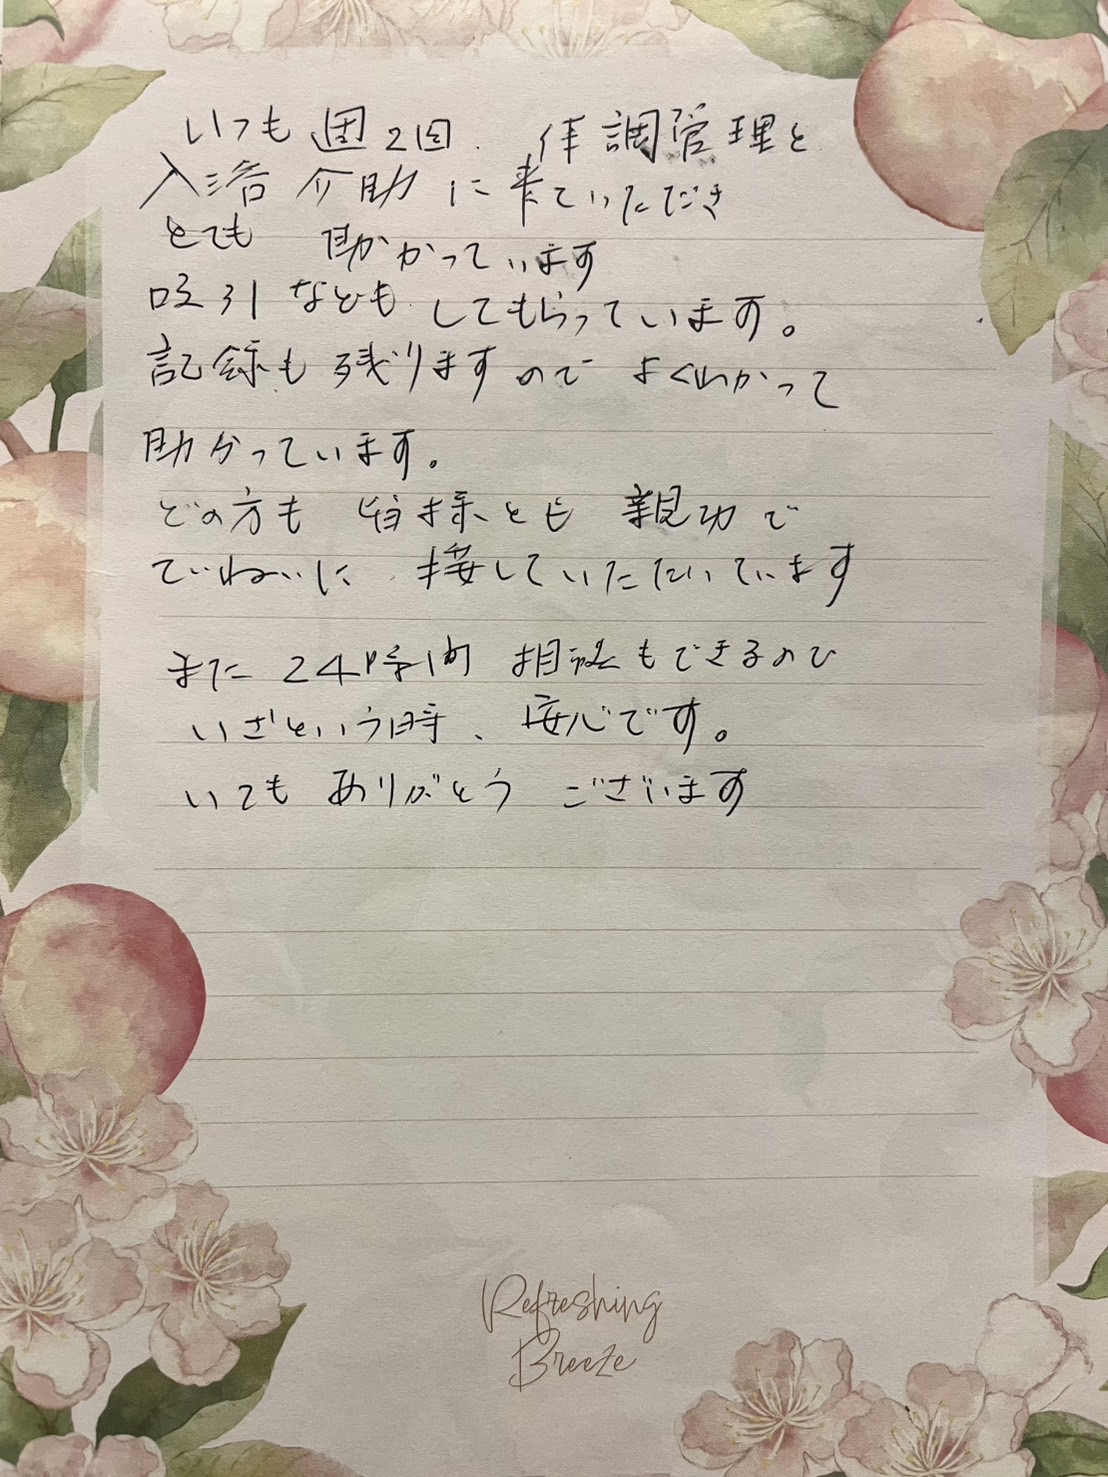 いつも週2回.体調管理と
入浴介助に来ていただき
とても 助かっています
吸引なども してもらっています。
記録も残りますので よくわかって
助かっています。
どの方も 皆様とも 親切で
ていねいに 接していただいています
また 24時間 相談もできるので
いざという時、安心です。
いつも ありがとう ございます
Refreshing
Breeze